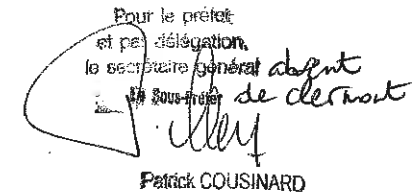 Pour le préfet
et par délégation,
le secrétaire général absent
le Sous-Préfet de clermont
Patrick COUSINARD